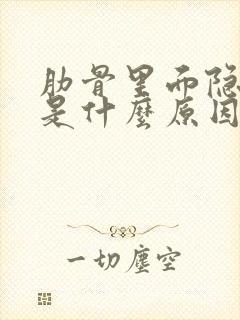 肋骨里而隐
是什麼原因
一切塵空